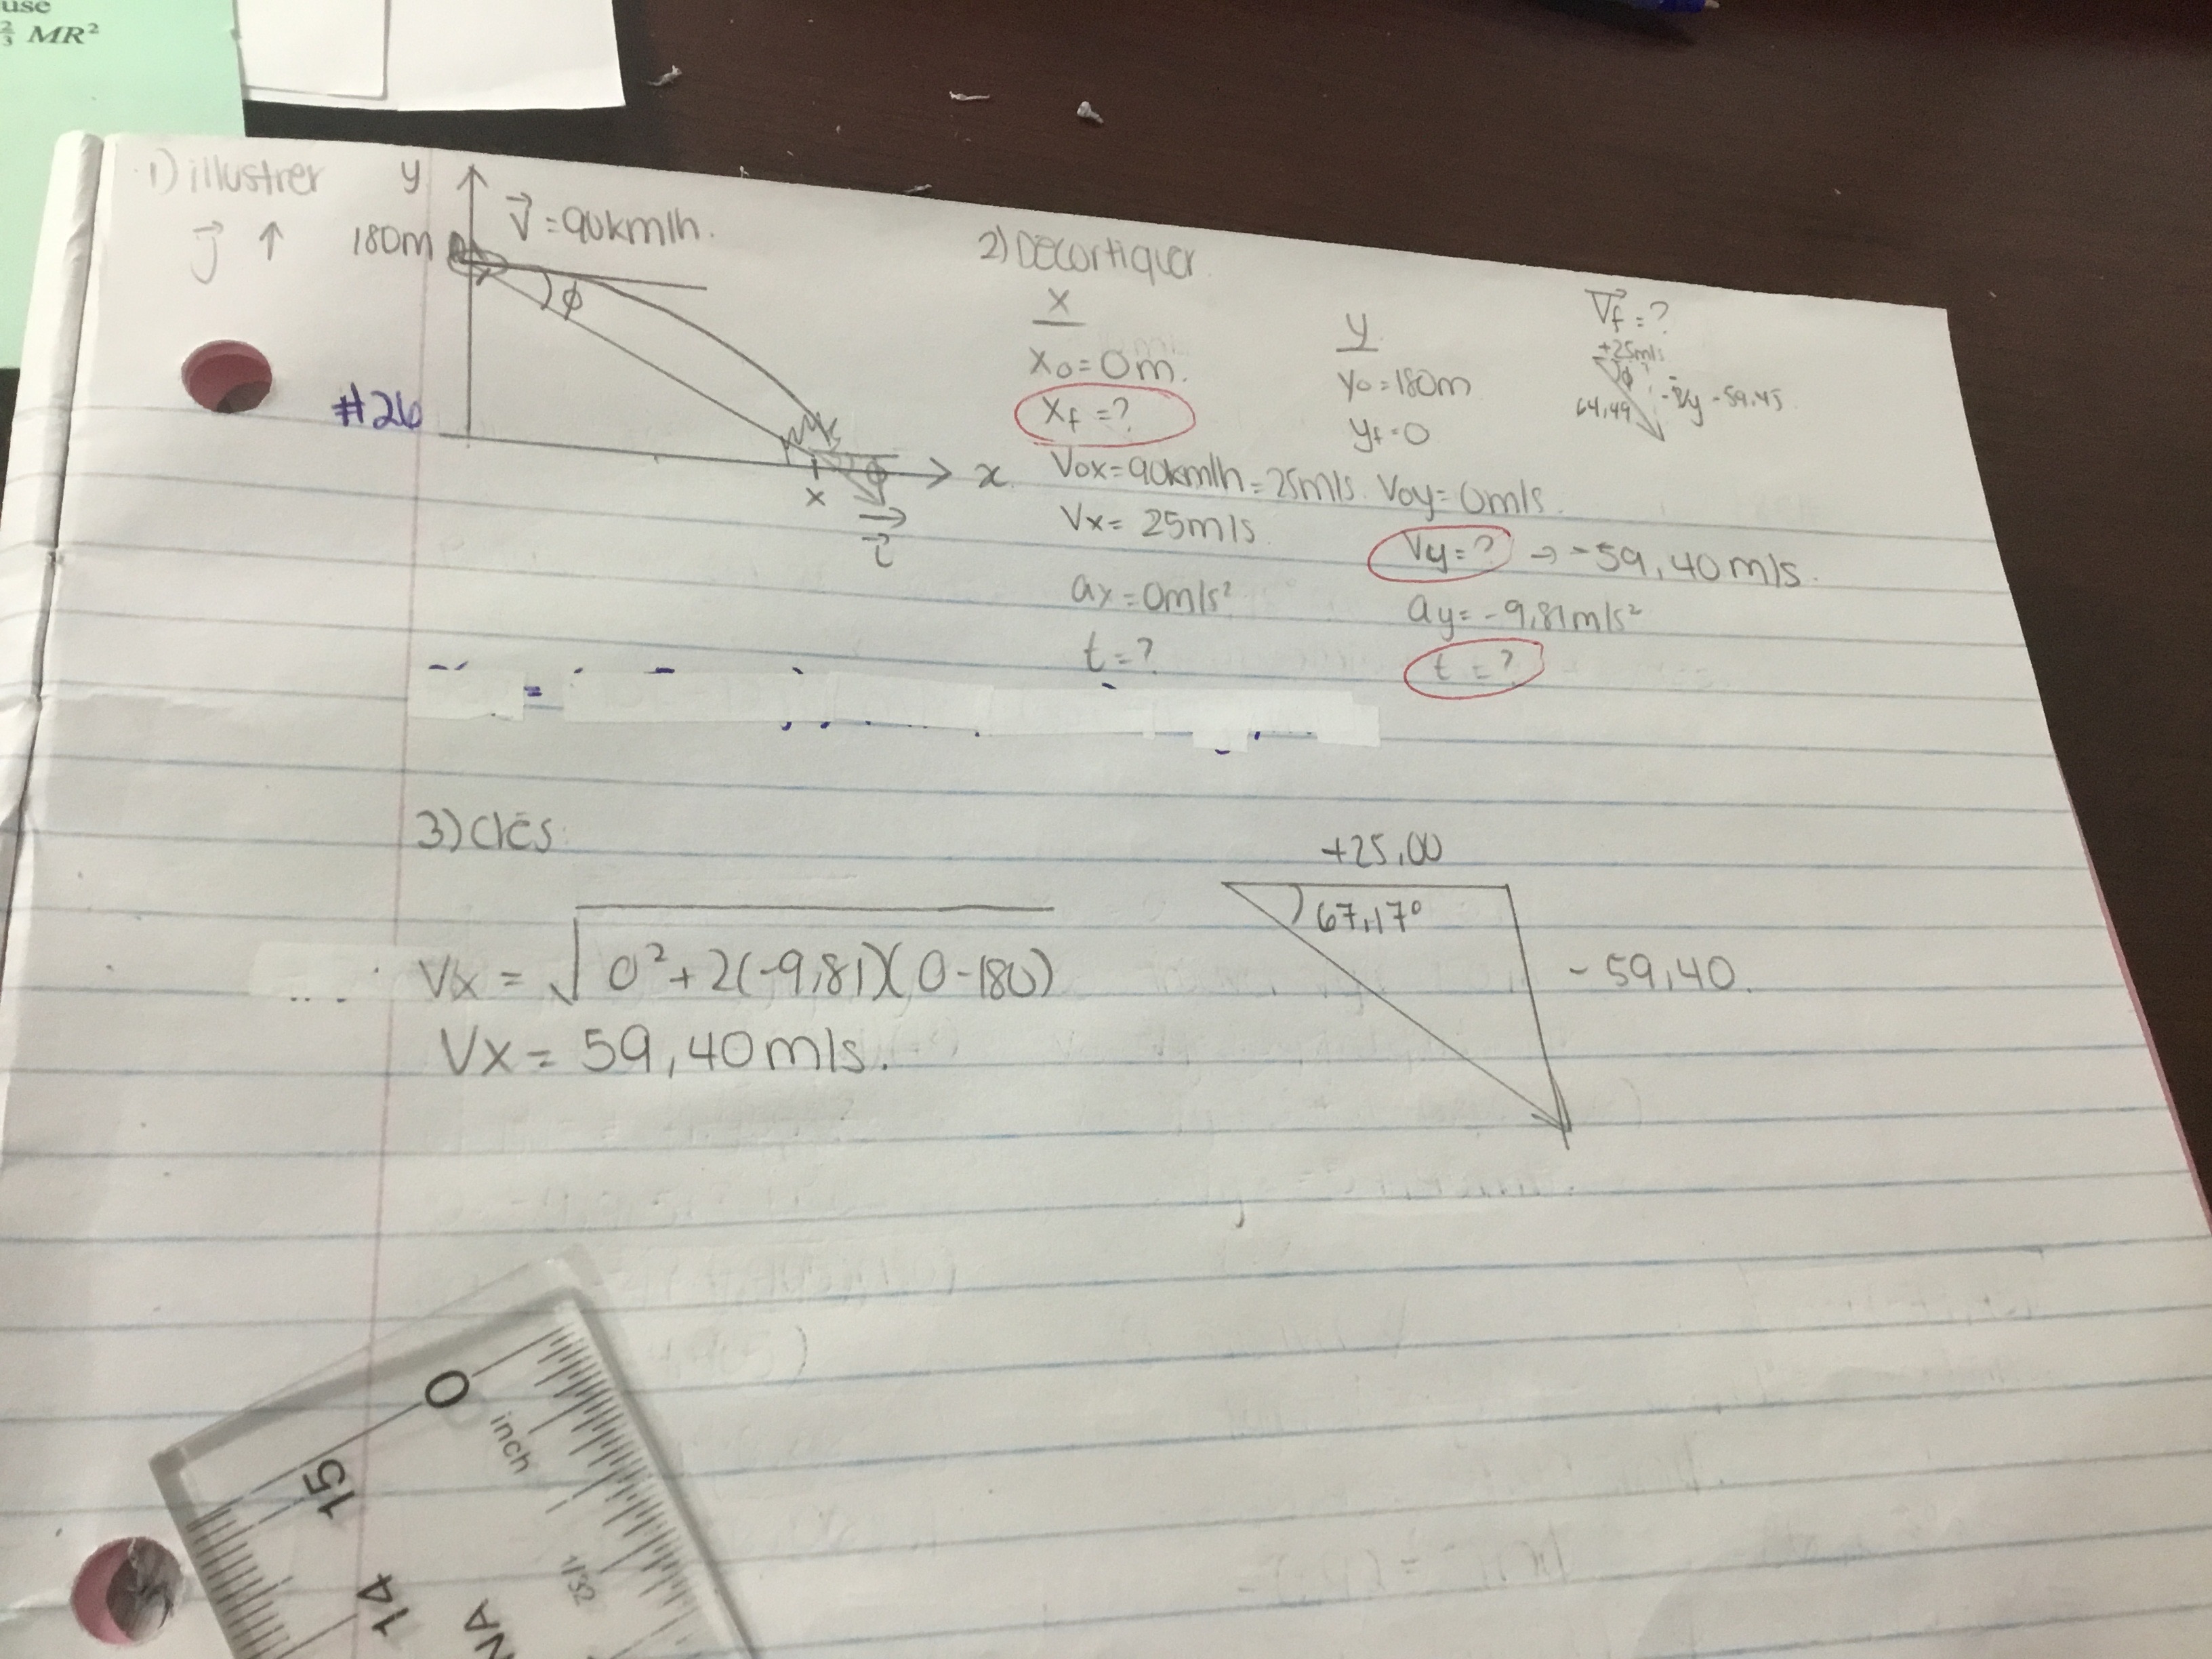 use
2/3 MR²
1) illustrer
y
j ↑
180m
v = 90km/h.
ϕ
#26
x
x
ϕ
i
2) Décortiquer
x
x₀ = 0m.
xf = ?
V₀x = 90km/h = 25m/s.
Vx = 25m/s
ax = 0m/s²
t = ?
y
y₀ = 180m
yf = 0
V₀y = 0m/s.
Vy = ? → -59,40 m/s.
ay = -9,81m/s²
t = ?
Vf = ?
+25m/s
ϕ
64,49
-59.45
3) Clés
Vx = √0² + 2(-9,81)(0-180)
Vx = 59,40 m/s.
+25,00
67,17°
-59,40.
0
inch
15
1/32
14